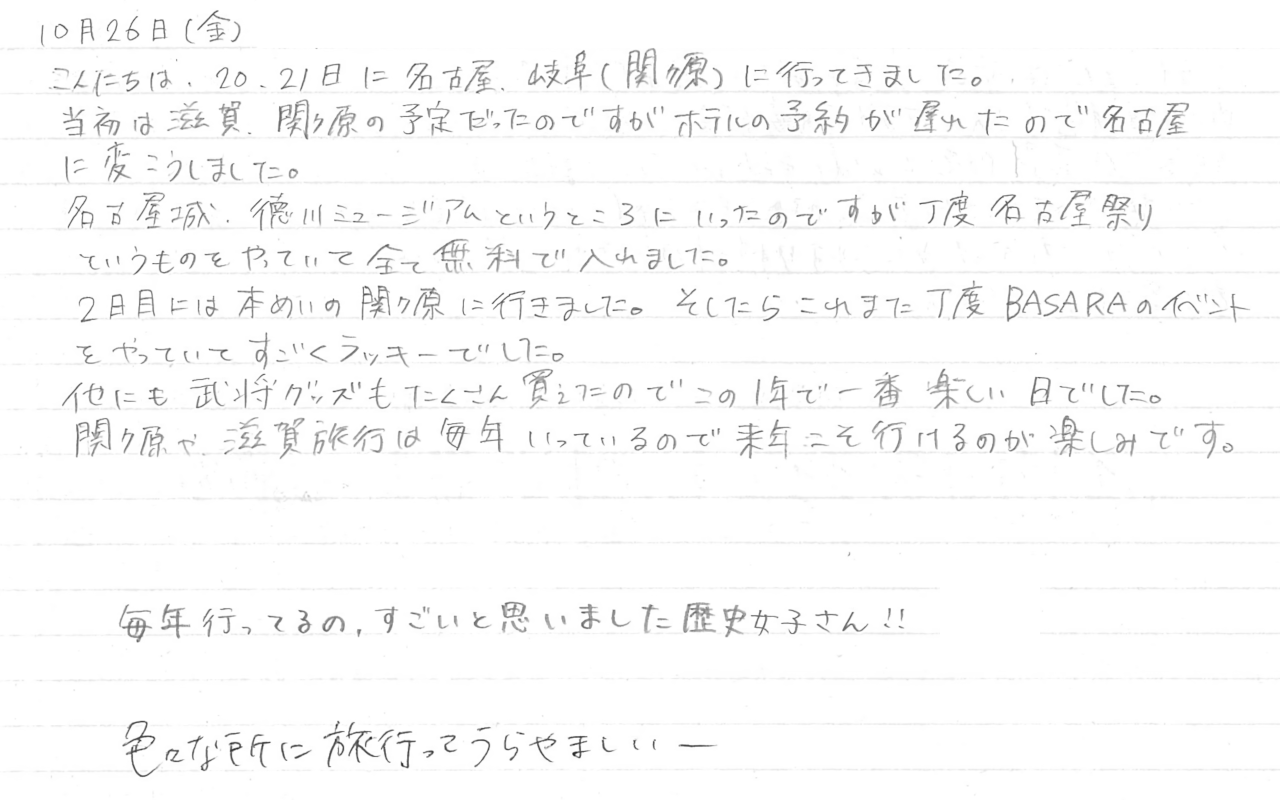 10月26日(金)
こんにちは、20、21日に名古屋、岐阜(関ヶ原)に行ってきました。
当初は滋賀、関ヶ原の予定だったのですがホテルの予約が遅れたので名古屋
に変こうしました。
名古屋城、徳川ミュージアムというところにいったのですが丁度名古屋祭り
というものをやっていて全て無料で入れました。
2日目には本めいの関ヶ原に行きました。そしたらこれまた丁度BASARAのイベント
をやっていてすごくラッキーでした。
他にも武将グッズもたくさん買えたのでこの1年で一番楽しい日でした。
関ヶ原や、滋賀旅行は毎年いっているので来年こそ行けるのが楽しみです。
毎年行ってるの,すごいと思いました歴史女子さん!!
色々な所に旅行ってうらやましいー